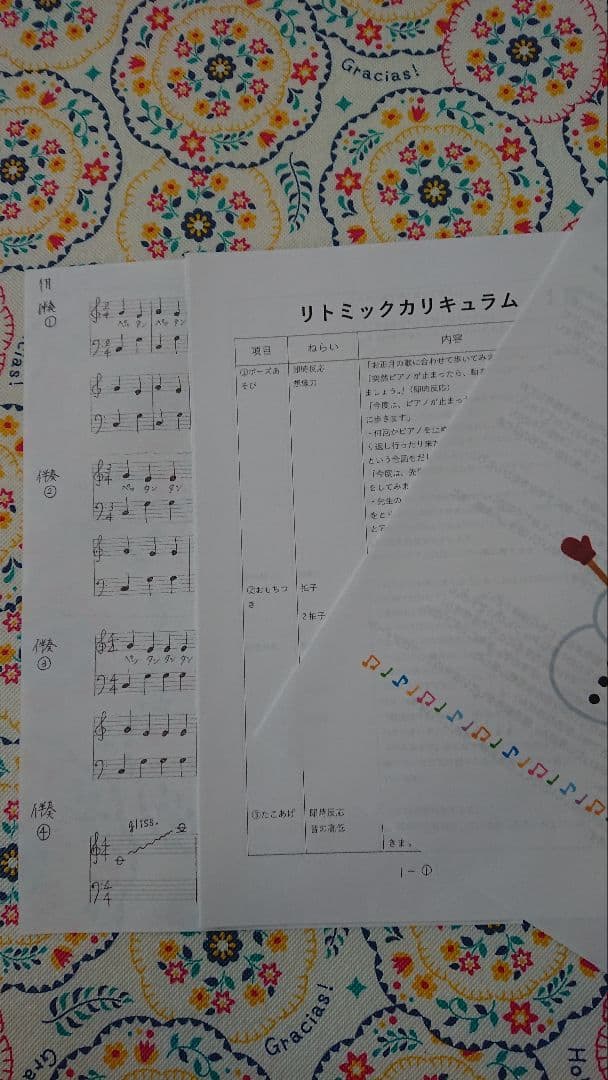 Gracias!
リトミックカリキュラム
項目
ねらい
内容
①ポーズあそび
即時反応
想像力
「お正月の歌に合わせて歩いてみま
「突然ピアノが止まったら、動き
ましょう。」(即時反応)
「今度は、ピアノが止まっ
に歩きます」
・何回かピアノを止め
り返し行ったり来た
という合図もだし
「今度は、先
をしてみま
・先生の
②おもちつき
拍子
2拍子
③たこあげ
即時反応
音の高低
きます。
1-①
1月
伴奏
①
ペッ タン ペッ タン
伴奏
②
ペッ タン タン
伴奏
③
ペッ タン タン タン
伴奏
④
gliss.
Gracias!
Gracias!
Gra
Ho